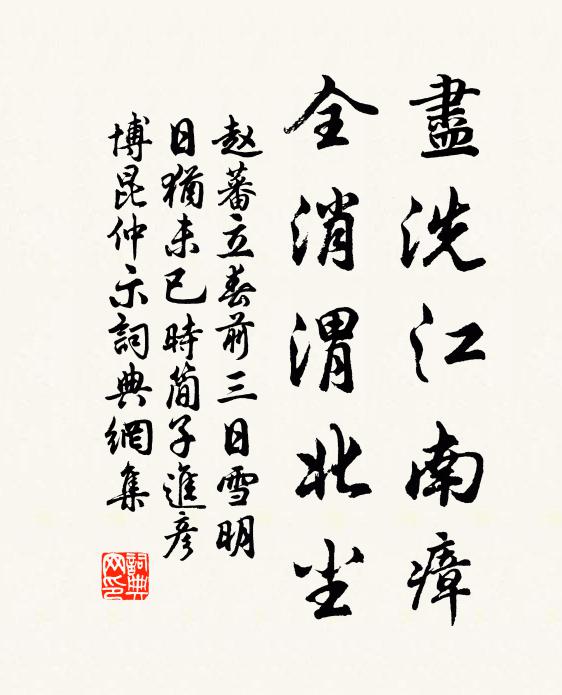 盡洗江南瘴
全消渭北尘
赵蕃立春前三日雪明
日猶未已時簡子進彦
博昆仲示詞典網集
詞典网印